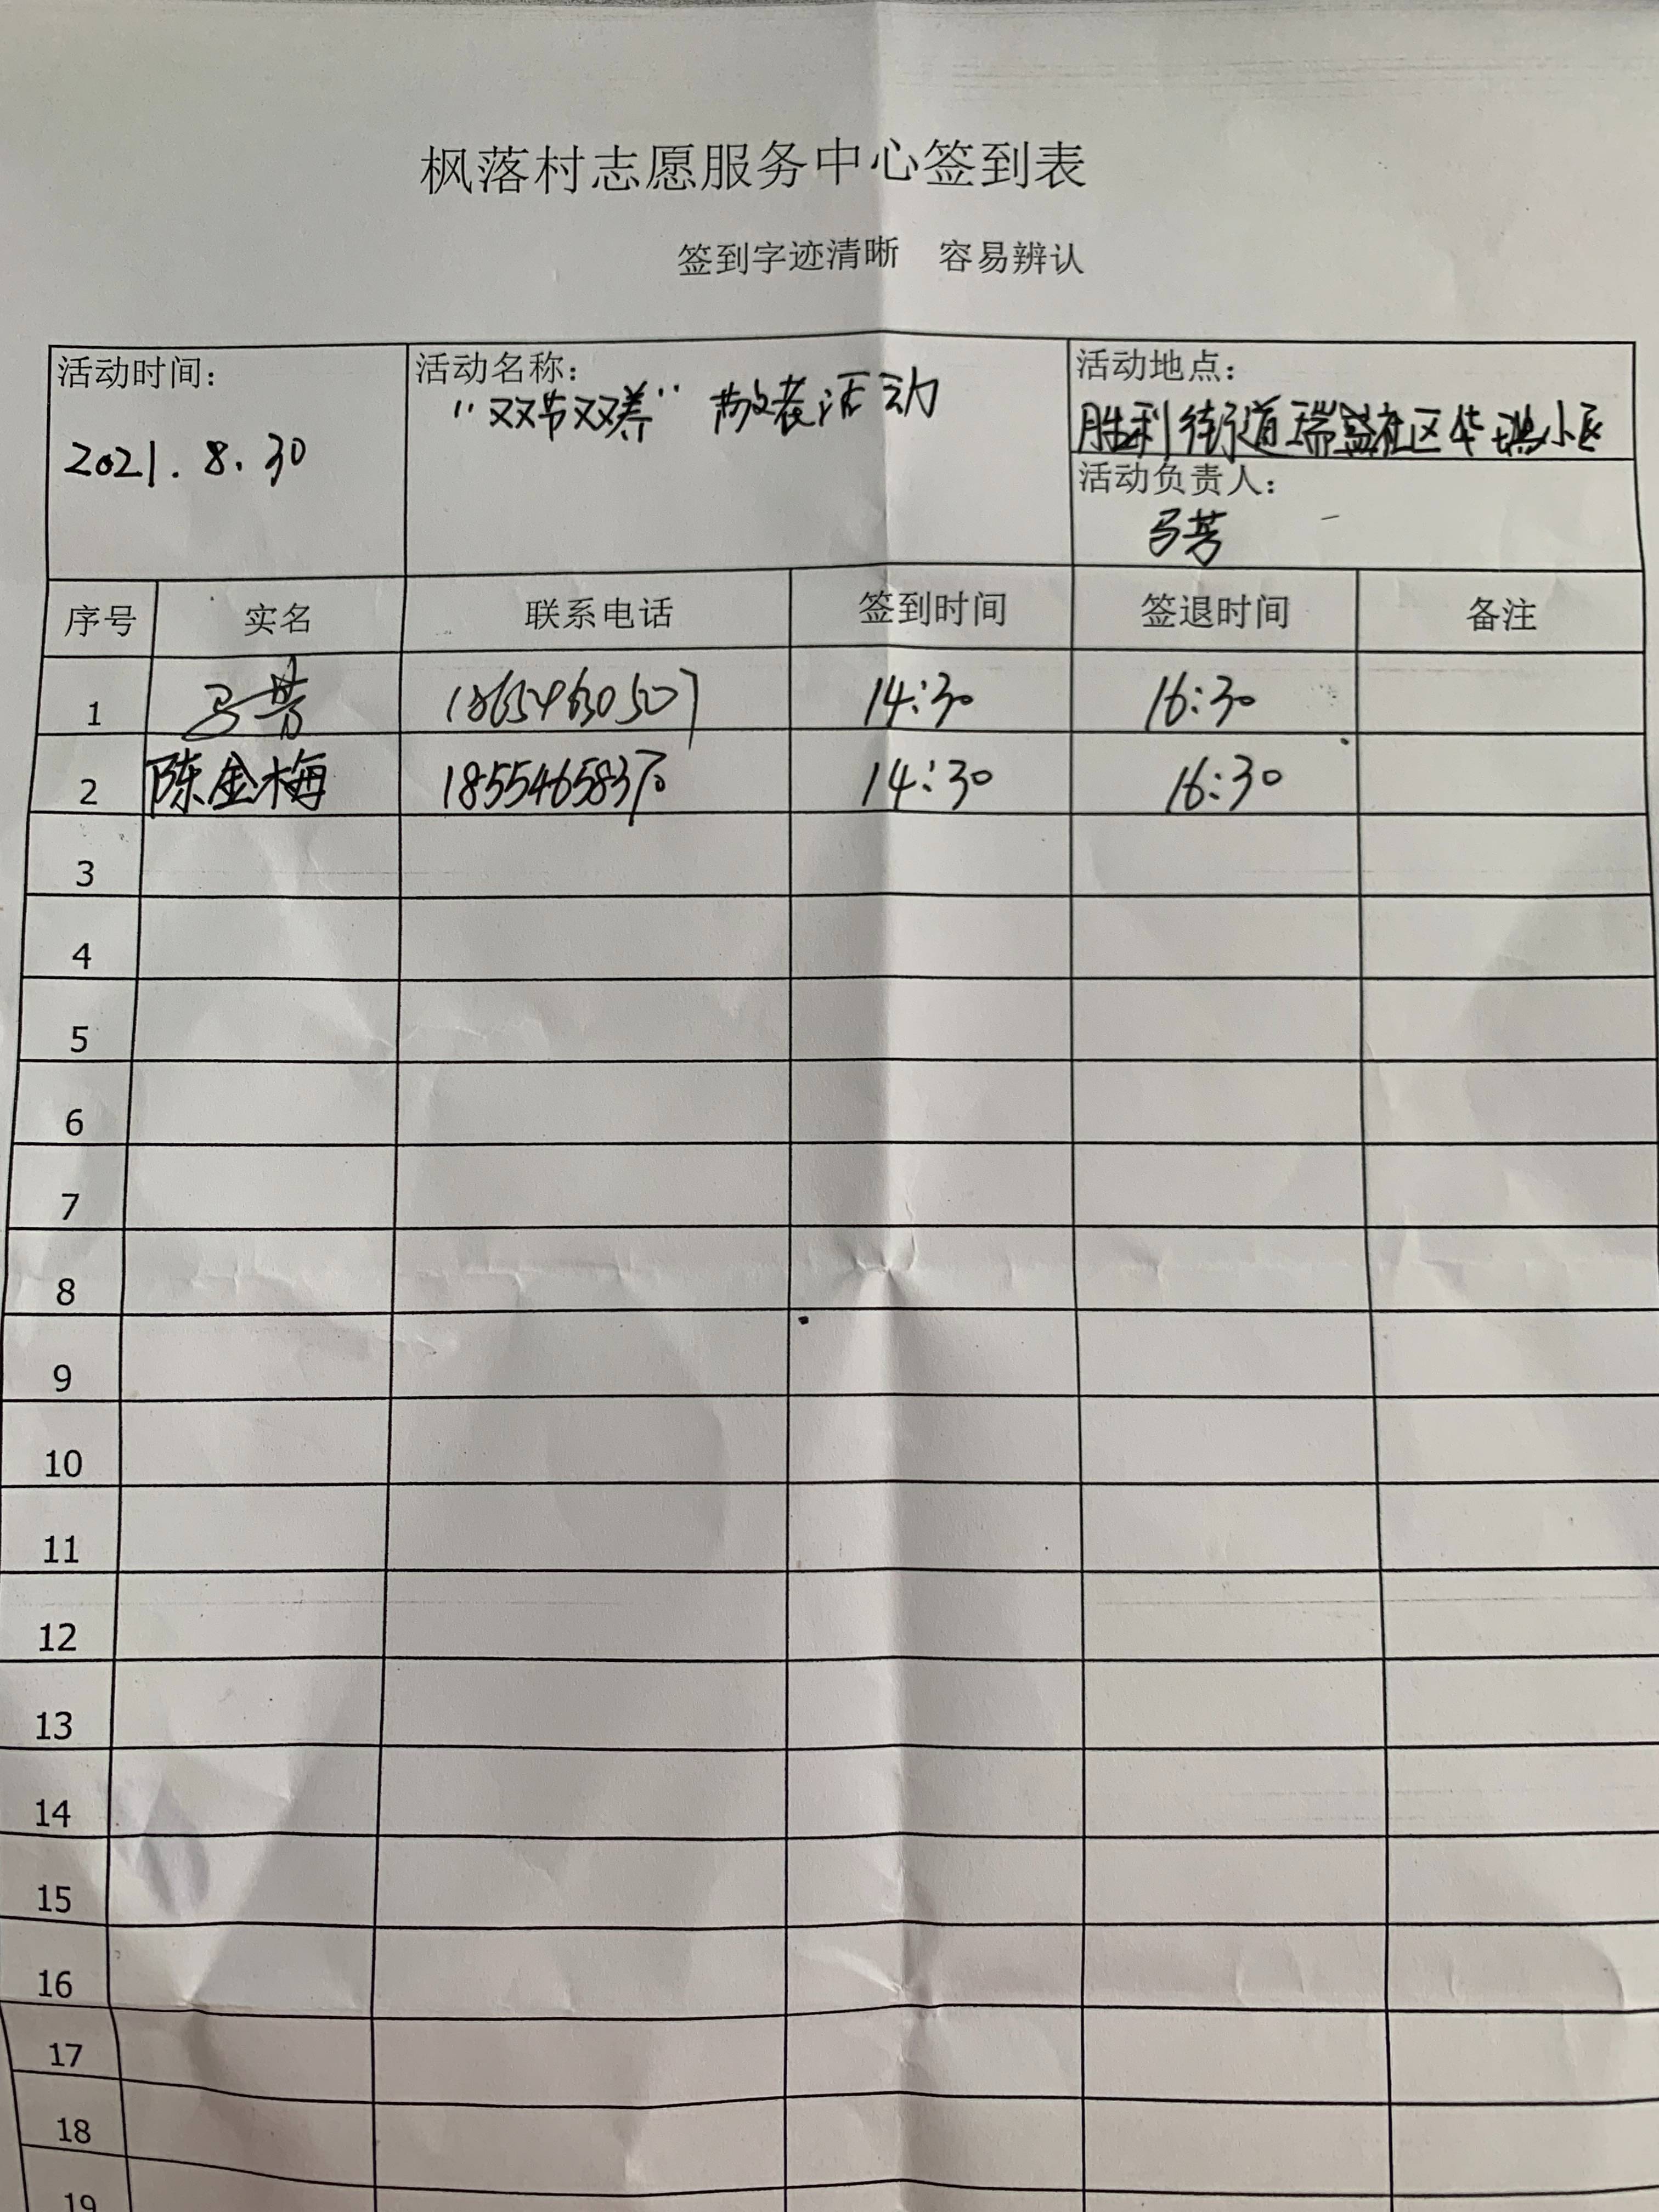 枫落村志愿服务中心签到表
签到字迹清晰 容易辨认
活动时间： 活动名称： 活动地点：
2021.8.30 “双节双荐” 敬老活动 胜利街道瑞益社区华瑞小区
活动负责人：
马芳
序号 实名 联系电话 签到时间 签退时间 备注
1 马芳 18654630507 14:30 16:30
2 陈金梅 14:30 16:30
3
4
5
6
7
8
9
10
11
12
13
14
15
16
17
18
19